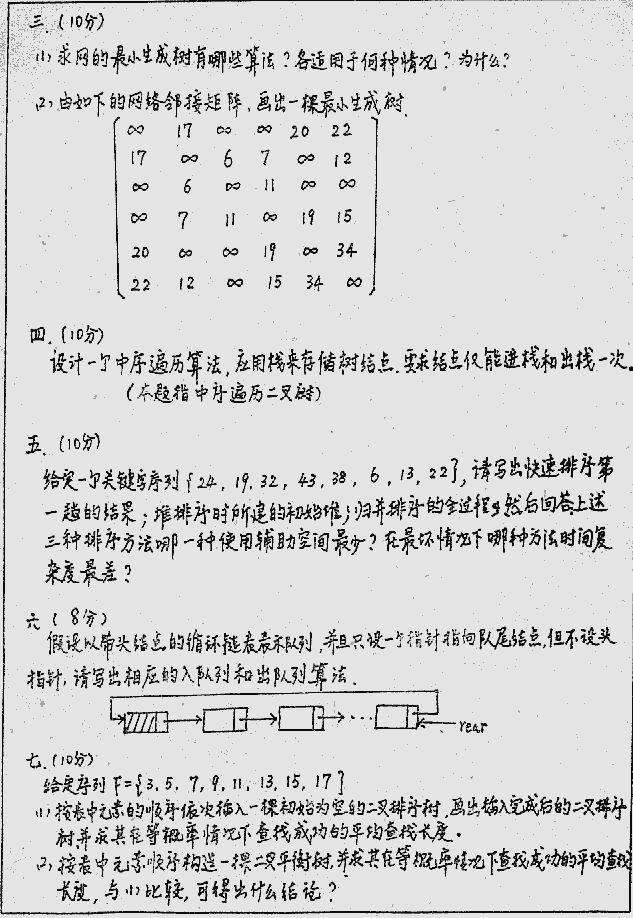 三. (10分)
(1) 求网的最小生成树有哪些算法？各适用于何种情况？为什么？
(2) 由如下的网络邻接矩阵, 画出一棵最小生成树.
∞ 17 ∞ ∞ 20 22
17 ∞ 6 7 ∞ 12
∞ 6 ∞ 11 ∞ ∞
∞ 7 11 ∞ 19 15
20 ∞ ∞ 19 ∞ 34
22 12 ∞ 15 34 ∞
四. (10分)
设计一个中序遍历算法, 应用栈来存储树结点. 要求结点仅能进栈和出栈一次。
(本题指中序遍历二叉树)
五. (10分)
给定一个关键字序列 {24, 19, 32, 43, 38, 6, 13, 22}, 请写出快速排序第
一趟的结果; 堆排序时所建的初始堆; 归并排序的全过程, 然后回答上述
三种排序方法哪一种使用辅助空间最少？在最坏情况下哪种方法时间复
杂度最差？
六 ( 8分)
假设以带头结点的循环链表表示队列, 并且只设一个指针指向队尾结点, 但不设头
指针, 请写出相应的入队列和出队列算法.
rear
七. (10分)
给定序列 F={3, 5, 7, 9, 11, 13, 15, 17}
(1) 按表中元素的顺序依次插入一棵初始为空的二叉排序树, 画出插入完成后的二叉排序
树并求其在等概率情况下查找成功的平均查找长度。
(2) 按表中元素顺序构造一棵二叉平衡树, 并求其在等概率情况下查找成功的平均查找
长度, 与(1)比较, 可得出什么结论？